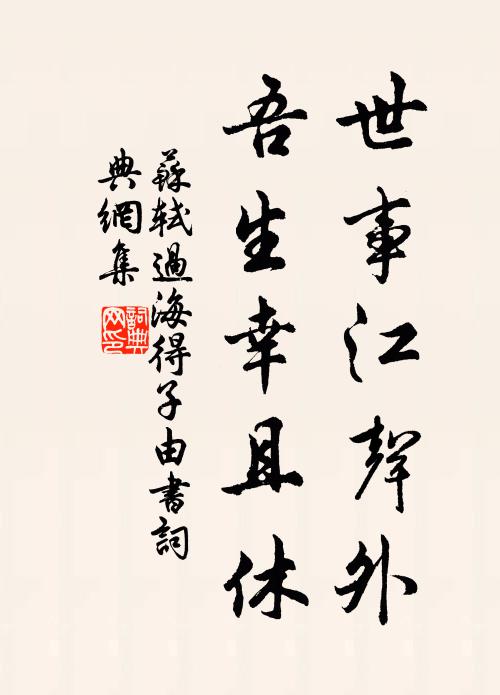 世事江聲外
吾生幸且休
蘇軾過海得子由書詞
典網集
詞典網印